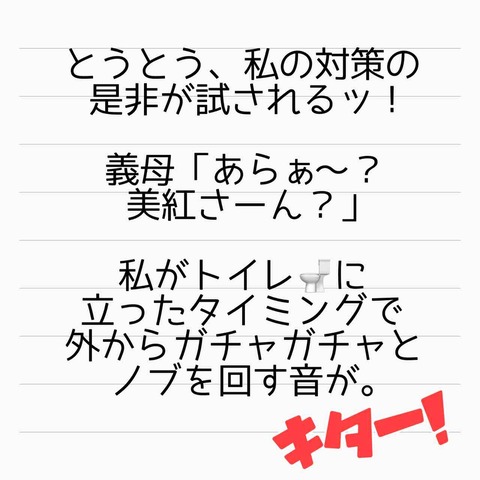 とうとう、私の対策の
是非が試されるッ！
義母「あらぁ〜？
美紅さーん？」
私がトイレ🚽に
立ったタイミングで
外からガチャガチャと
ノブを回す音が。
キター!